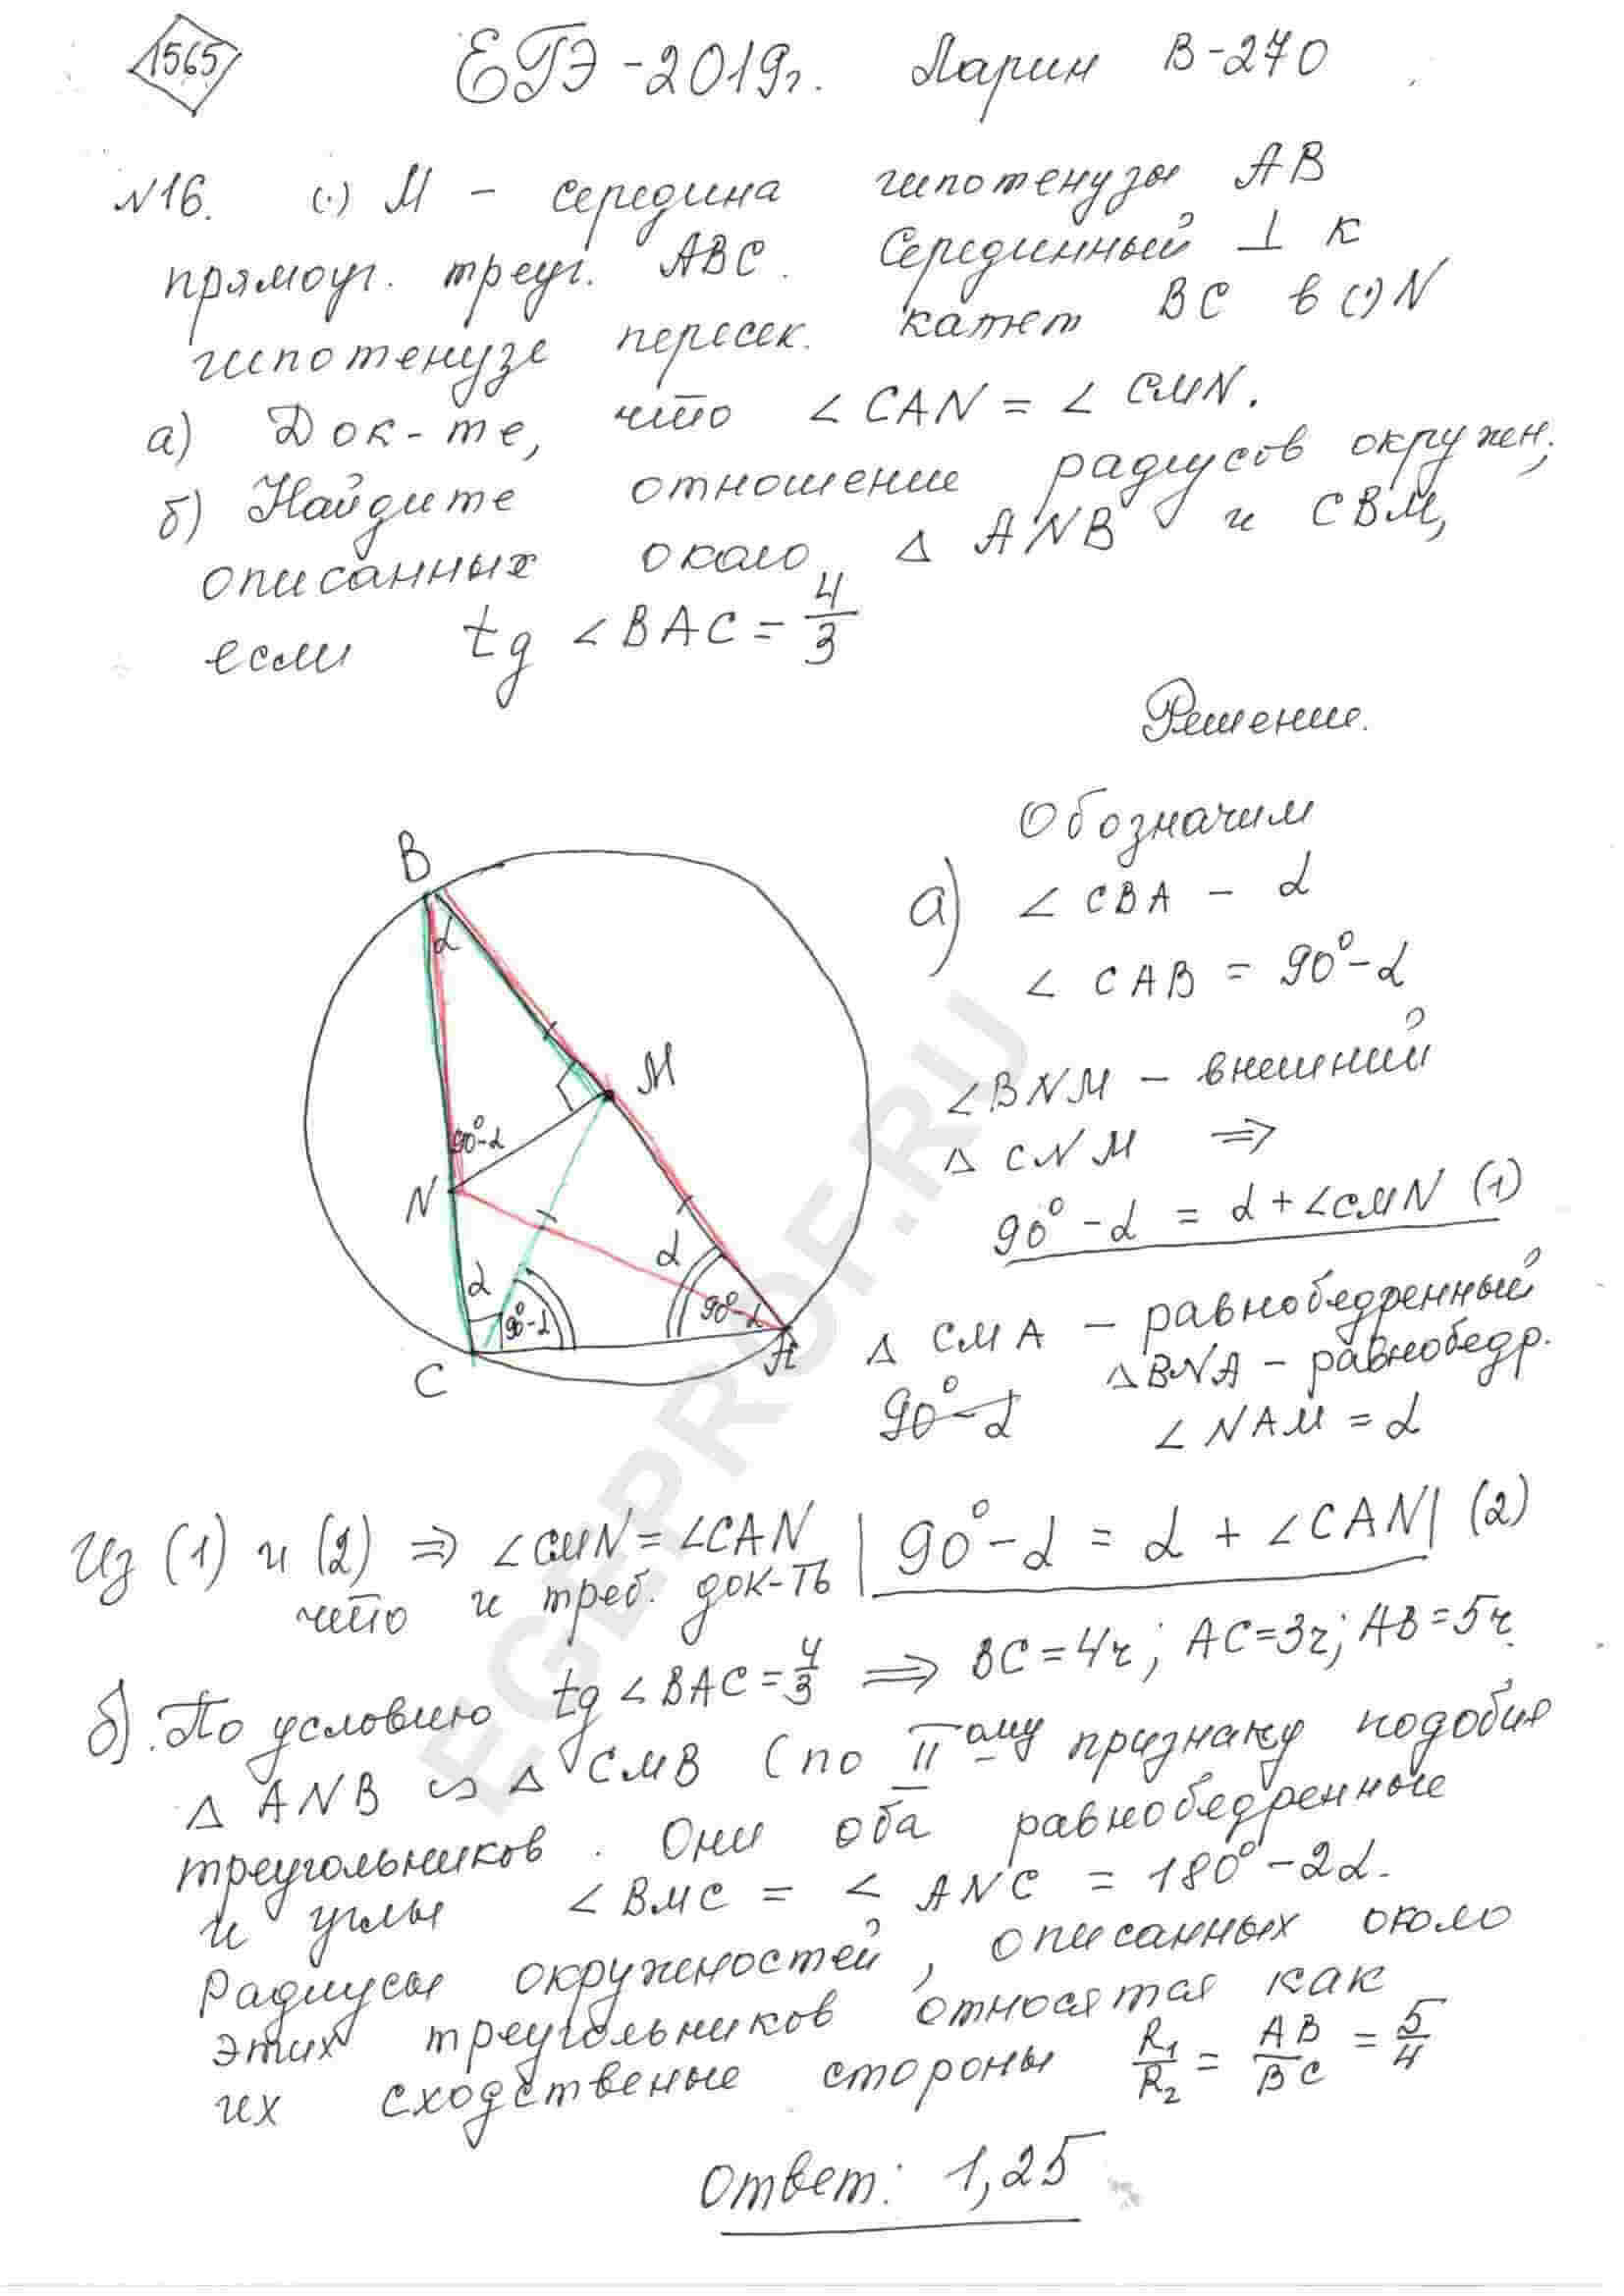 1565
ЕГЭ-2019г. Ларин В-270
N16. (·) M – середина гипотенузы AB
прямоуг. треуг. ABC. Серединный ⊥ к
гипотенузе пересек. катет BC в (·) N
а) Док-те, что ∠CAN = ∠CMN.
б) Найдите отношение радиусов окружн.,
описанных около △ ANB и CBM,
если tg ∠BAC = 4/3
Решение.
Обозначим
а) ∠ CBA – α
∠ CAB = 90° – α
∠BNM – внешний
△ CNM ⇒
90° – α = α + ∠CMN (1)
△ CMA – равнобедренный
△BNA – равнобедр.
90° – α
∠ NAM = α
B
α
M
90°-α
N
α
α
90°-α
90°-α
C
A
Из (1) и (2) ⇒ ∠CMN = ∠CAN | 90° – α = α + ∠CAN | (2)
что и треб. док-ть
б). По условию tg ∠BAC = 4/3 ⇒ BC = 4x; AC = 3x; AB = 5x
△ ANB ∽ △ CMB (по II ому признаку подобия
треугольников. Они оба равнобедренные
и углы ∠BMC = ∠ ANC = 180° – 2α.
Радиусы окружностей, описанных около
этих треугольников относятся как
их сходственые стороны R₁/R₂ = AB/BC = 5/4
Ответ: 1,25
EGEPROF.RU